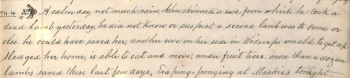 A calm day, not much rain, John skinned a ewe from which he took a
dead lamb yesterday, he did not know or suspect a second lamb was to come or
else he could have saved her, another ewe on her side in unable to get up
Sleaged her home, is able to eat and move, under fruit trees, more than a dozen
lambs saved these last few days, ping-ponging at Mackie's tonight.